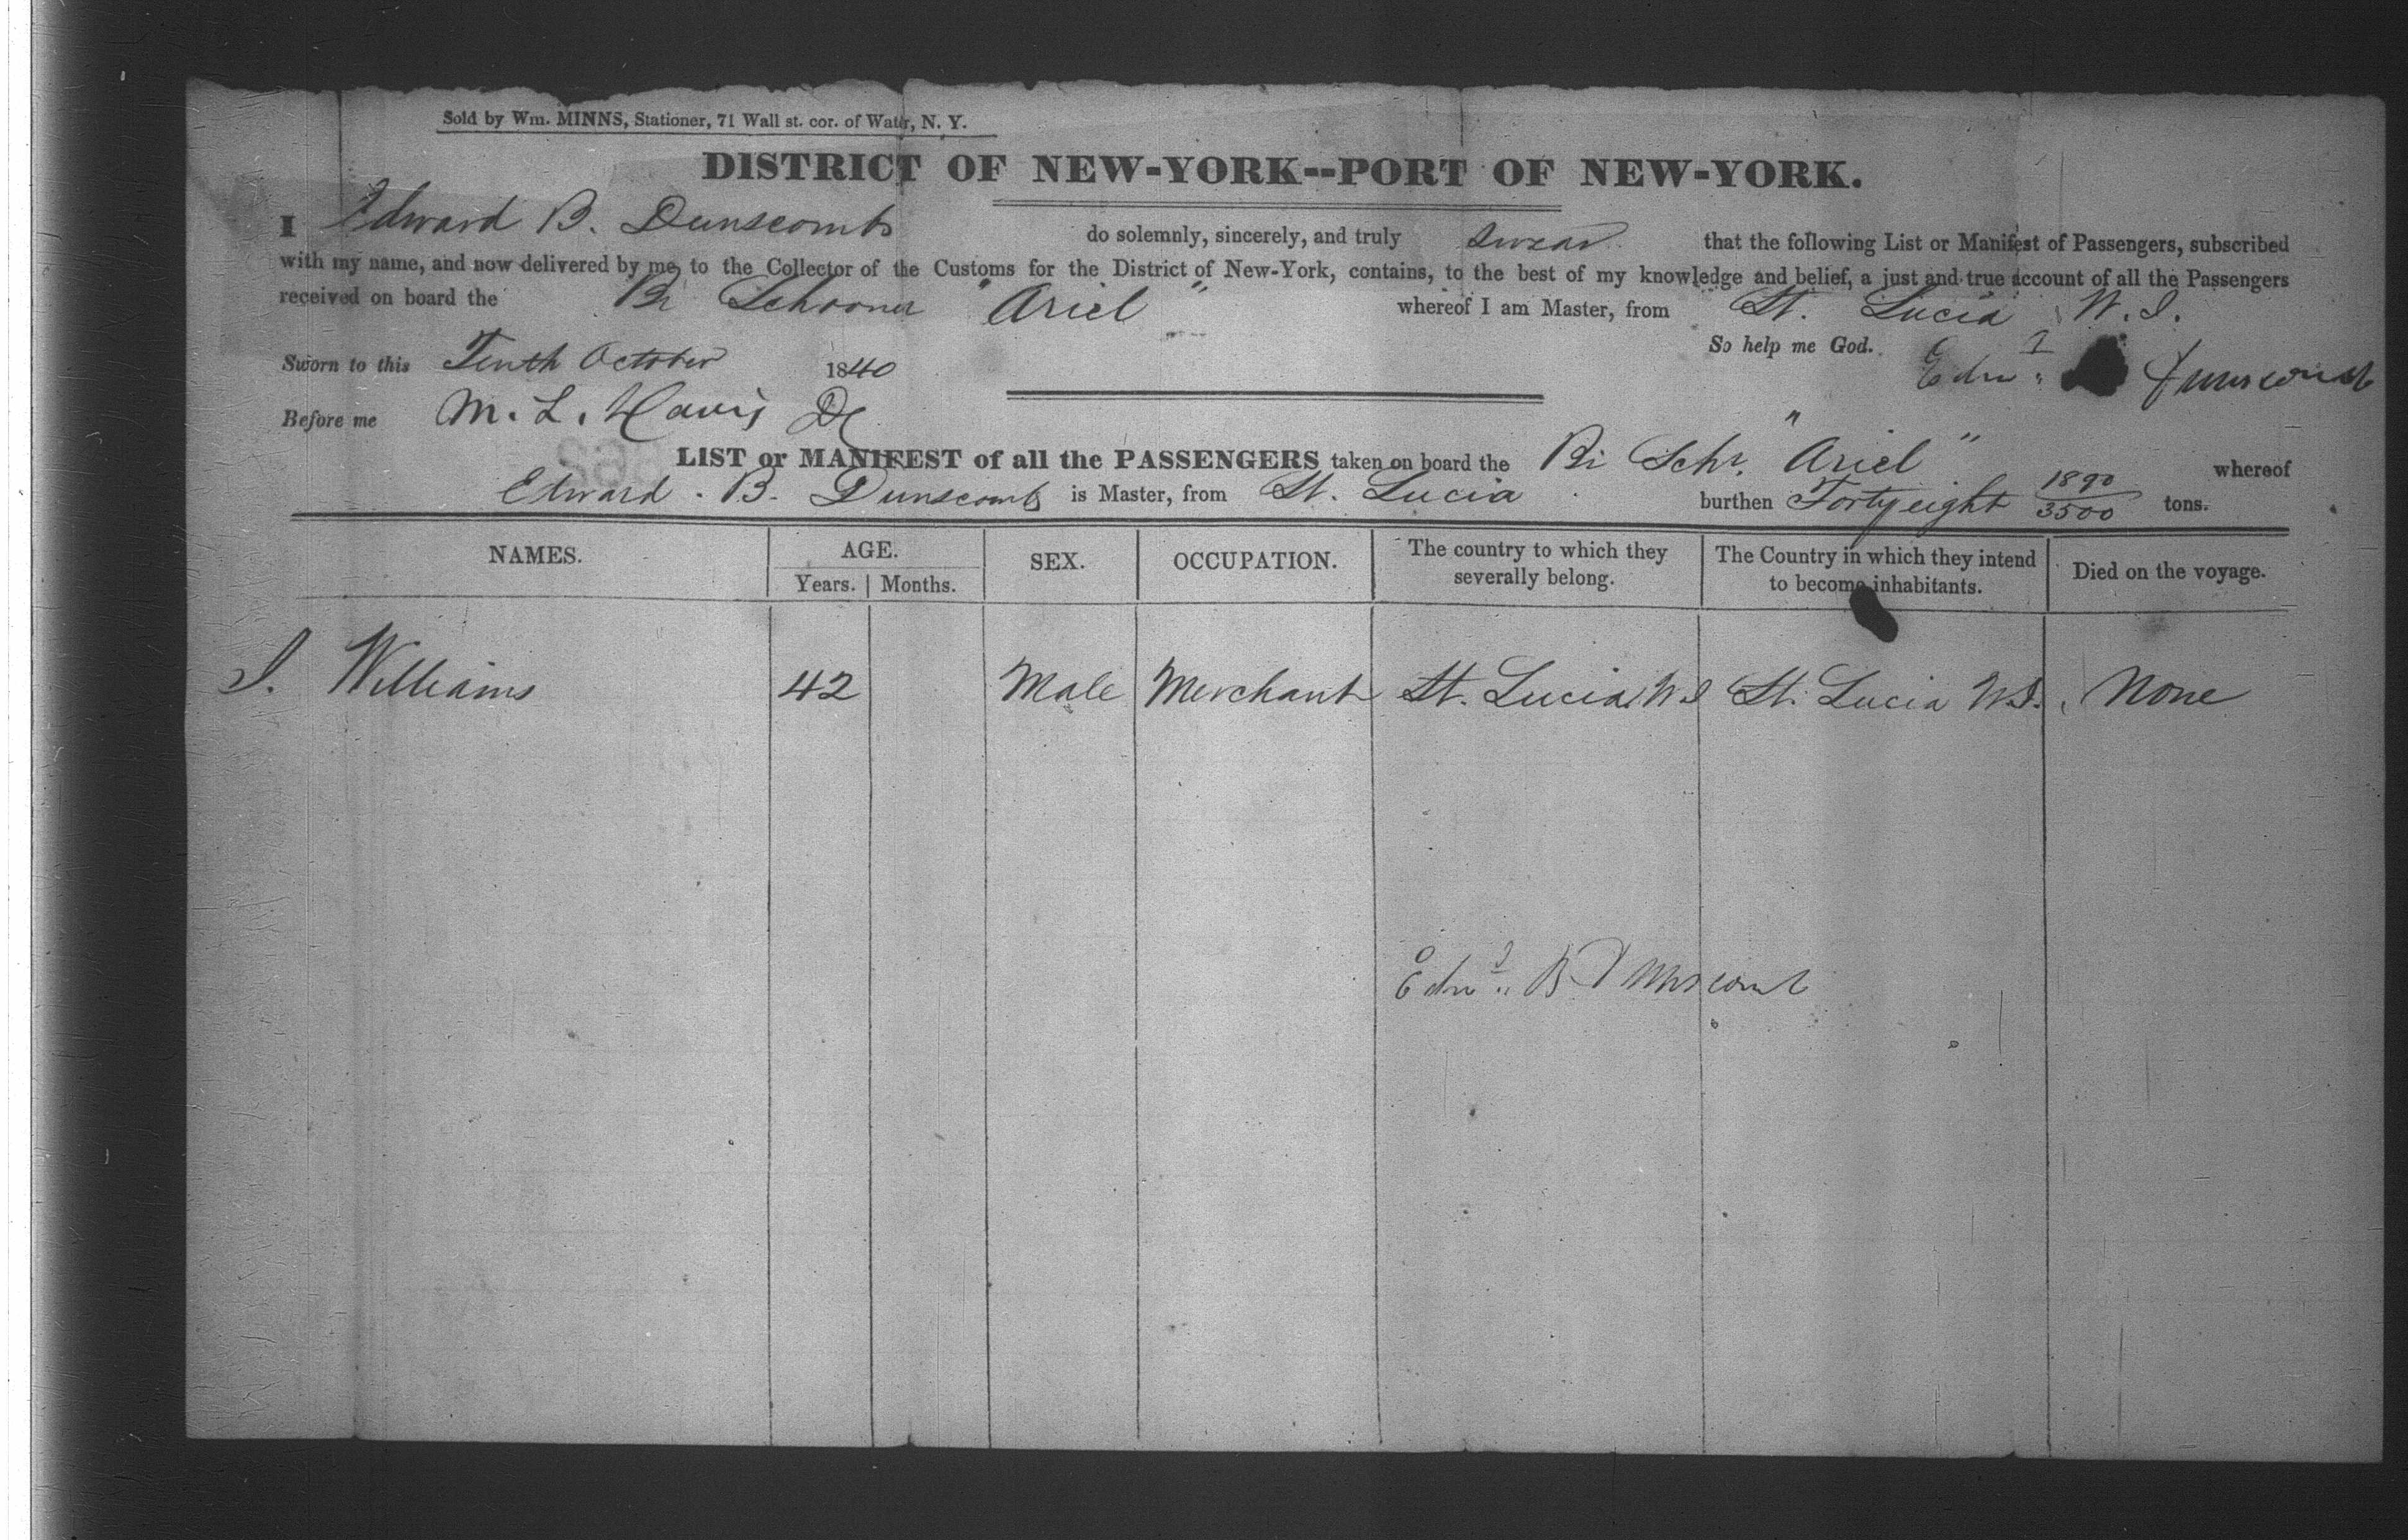 Sold by Wm. MINNS, Stationer, 71 Wall st. cor. of Water, N. Y.
DISTRICT OF NEW-YORK--PORT OF NEW-YORK.
I Edward B. Dunscomb do solemnly, sincerely, and truly swear that the following List or Manifest of Passengers, subscribed
with my name, and now delivered by me, to the Collector of the Customs for the District of New-York, contains, to the best of my knowledge and belief, a just and true account of all the Passengers
received on board the Br Schooner "Ariel" whereof I am Master, from St. Lucia W. I.
So help me God. Edwd Dunscomb
Sworn to this Tenth October 1840
Before me M. L. Davis
LIST or MANIFEST of all the PASSENGERS taken on board the Br Schr. "Ariel" whereof
Edward B. Dunscomb is Master, from St. Lucia burthen Forty eight 1890/3500 tons.
NAMES. AGE. SEX. OCCUPATION. The country to which they severally belong. The Country in which they intend to become inhabitants. Died on the voyage.
Years. Months.
I. Williams 42 Male Merchant St. Lucia W I St. Lucia W.I. None
Edwd B Dunscomb